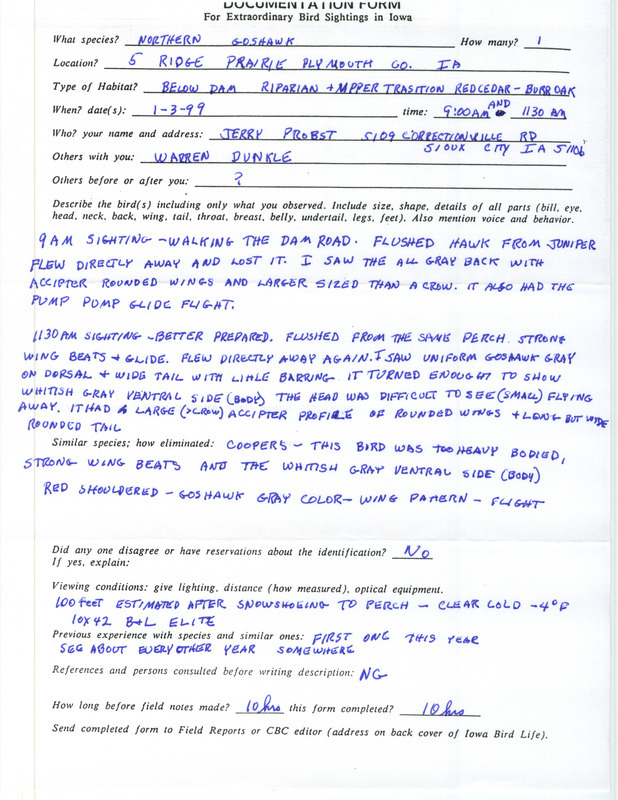 DOCUMENTATION FORM
For Extraordinary Bird Sightings in Iowa
What species? NORTHERN GOSHAWK How many? 1
Location? 5 RIDGE PRAIRIE PLYMOUTH CO. IA
Type of Habitat? BELOW DAM RIPARIAN + MPPER TRASITION REDCEDAR - BURR OAK
When? date(s): 1-3-99 time: 9:00AM AND 1130 AM
Who? your name and address: JERRY PROBST 5109 CORRECTIONVILLE RD
SIOUX CITY IA 51106
Others with you: WARREN DUNKLE
Others before or after you: ?
Describe the bird(s) including only what you observed. Include size, shape, details of all parts (bill, eye,
head, neck, back, wing, tail, throat, breast, belly, undertail, legs, feet). Also mention voice and behavior.
9AM SIGHTING - WALKING THE DAM ROAD. FLUSHED HAWK FROM JUNIPER
FLEW DIRECTLY AWAY AND LOST IT. I SAW THE ALL GRAY BACK WITH
ACCIPTER ROUNDED WINGS AND LARGER SIZED THAN A CROW. IT ALSO HAD THE
PUMP PUMP GLIDE FLIGHT.
1130AM SIGHTING - BETTER PREPARED. FLUSHED FROM THE SAME PERCH. STRONG
WING BEATS + GLIDE. FLEW DIRECTLY AWAY AGAIN. I SAW UNIFORM GOSHAWK GRAY
ON DORSAL + WIDE TAIL WITH LITTLE BARRING. IT TURNED ENOUGHT TO SHOW
WHITISH GRAY VENTRAL SIDE (BODY) THE HEAD WAS DIFFICULT TO SEE (SMALL) FLYING
AWAY. IT HAD A LARGE (>CROW) ACCIPTER PROFILE OF ROUNDED WINGS + LONG BUT WIDE
ROUNDED TAIL
Similar species; how eliminated: COOPERS - THIS BIRD WAS TOO HEAVY BODIED,
STRONG WING BEATS AND THE WHITISH GRAY VENTRAL SIDE (BODY)
RED SHOULDERED - GOSHAWK GRAY COLOR - WING PATTERN - FLIGHT
Did any one disagree or have reservations about the identification? NO
If yes, explain:
Viewing conditions: give lighting, distance (how measured), optical equipment.
100 feet ESTIMATED AFTER SNOWSHOEING TO PERCH - CLEAR COLD -4°F
10X42 B+L ELITE
Previous experience with species and similar ones: FIRST ONE THIS YEAR
SEE ABOUT EVERY OTHER YEAR SOMEWHERE
References and persons consulted before writing description: NG
How long before field notes made? 10 hrs this form completed? 10 hrs
Send completed form to Field Reports or CBC editor (address on back cover of Iowa Bird Life).